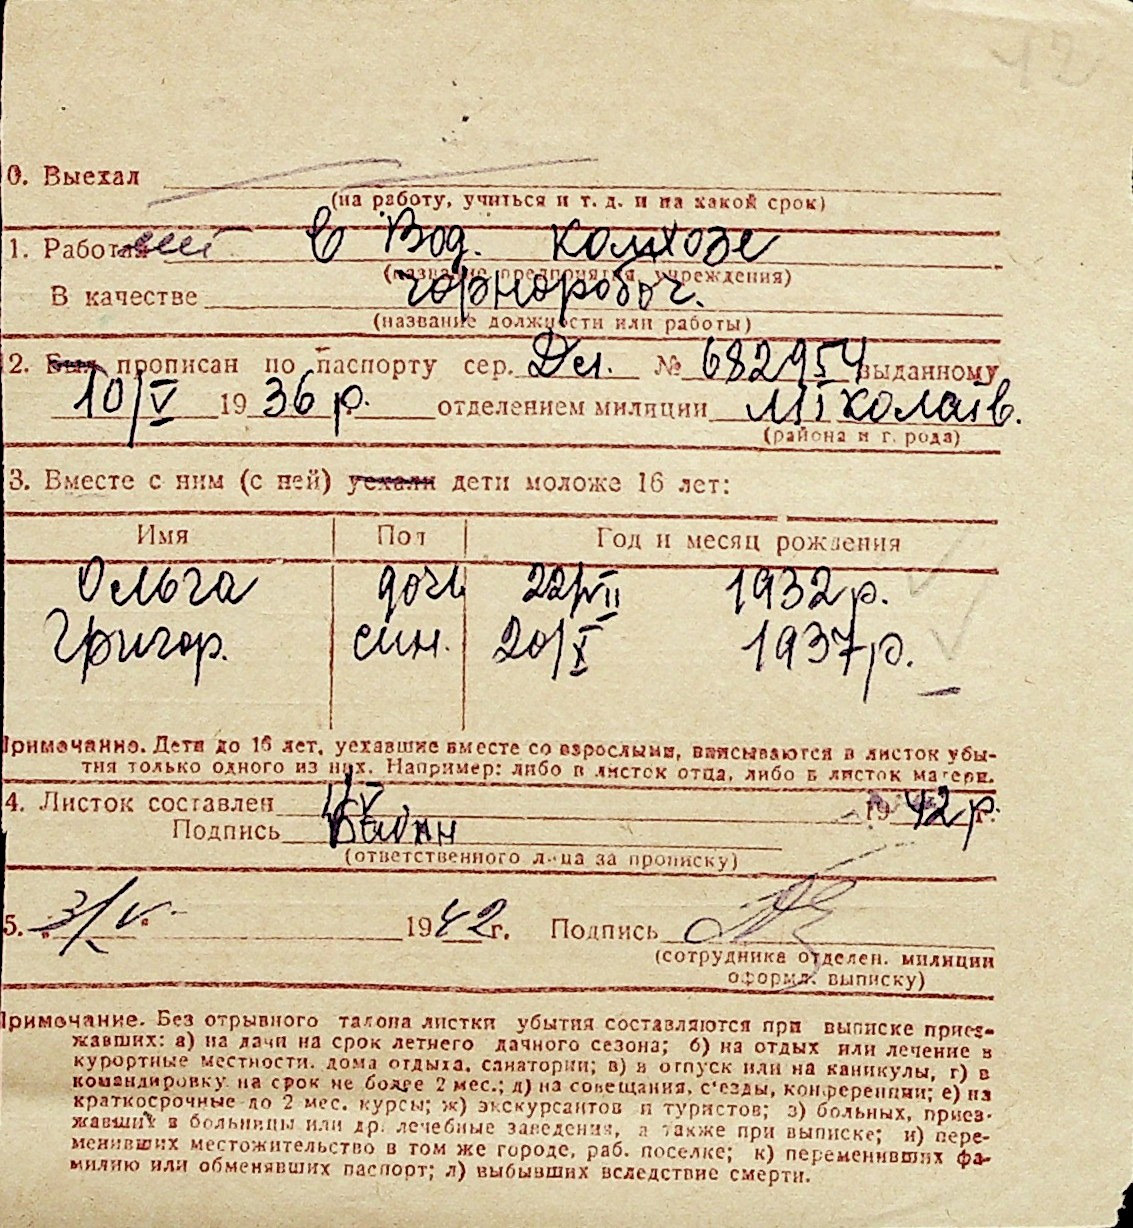 12
0. Выехал
(на работу, учиться и т. д. и на какой срок)
1. Работает в Вод. колхозе
(название предприятия, учреждения)
В качестве чорноробоч.
(название должности или работы)
2. Был прописан по паспорту сер. № 682954 выданному
10/V 1936 р. отделением милиции Миколаів.
(района и г. рода)
3. Вместе с ним (с ней) уехали дети моложе 16 лет:
Имя Пол Год и месяц рождения
Ольга дочь 22/VII 1932 р.
Григор. син. 20/X 1937 р.
Примечание. Дети до 16 лет, уехавшие вместе со взрослыми, вписываются в листок убы-
тия только одного из них. Например: либо в листок отца, либо в листок матери.
4. Листок составлен 1942 р.
Подпись
(ответственного лица за прописку)
5. 3/V 1942 г. Подпись
(сотрудника отделен. милиции
оформл. выписку)
Примечание. Без отрывного талона листки убытия составляются при выписке приез-
жавших: а) на дачи на срок летнего дачного сезона; б) на отдых или лечение в
курортные местности, дома отдыха, санатории; в) в отпуск или на каникулы, г) в
командировку на срок не более 2 мес.; д) на совещания, с'езды, конференции; е) на
краткосрочные до 2 мес. курсы; ж) экскурсантов и туристов; з) больных, приез-
жавших в больницы или др. лечебные заведения, а также при выписке; и) пере-
менивших местожительство в том же городе, раб. поселке; к) переменивших фа-
милию или обменявших паспорт; л) выбывших вследствие смерти.